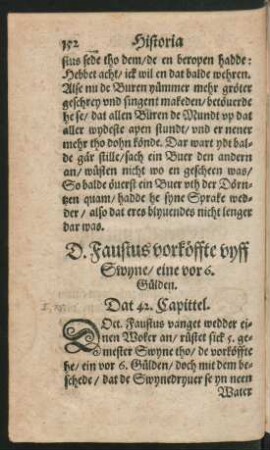 152 Historia
sius sede tho dem/de en beropen hadde:
Hebbet acht/ ick wil en dat balde wehren.
Alse nu de Buren yümmer mehr gröter
geschrey vnd singent makeden/ betöuerde
he se/ dat allen Büren de Mundt vp dat
aller wydeste apen stundt/ vnd er nener
mehr tho dohn könde. Dar wart ydt bal-
de gär stille/ sach ein Buer den andern
an/ wüsten nicht wo en gescheen was/
So balde öuerst ein Buer vth der Dörn-
tzen quam/ hadde he syne Sprake wed-
der/ also dat eres blyuendes nicht lenger
dar was.
D. Faustus vorköffte vyff
Swyne/ eine vor 6.
Gülden.
Dat 42. Capittel.
DOct. Faustus vanget wedder ei-
nen Woker an/ rüstet sick 5. ge-
mester Swyne tho/ de vorköffte
he/ ein vor 6. Gülden/ doch mit dem be-
schede/ dat de Swynedryuer se yn neen
Water